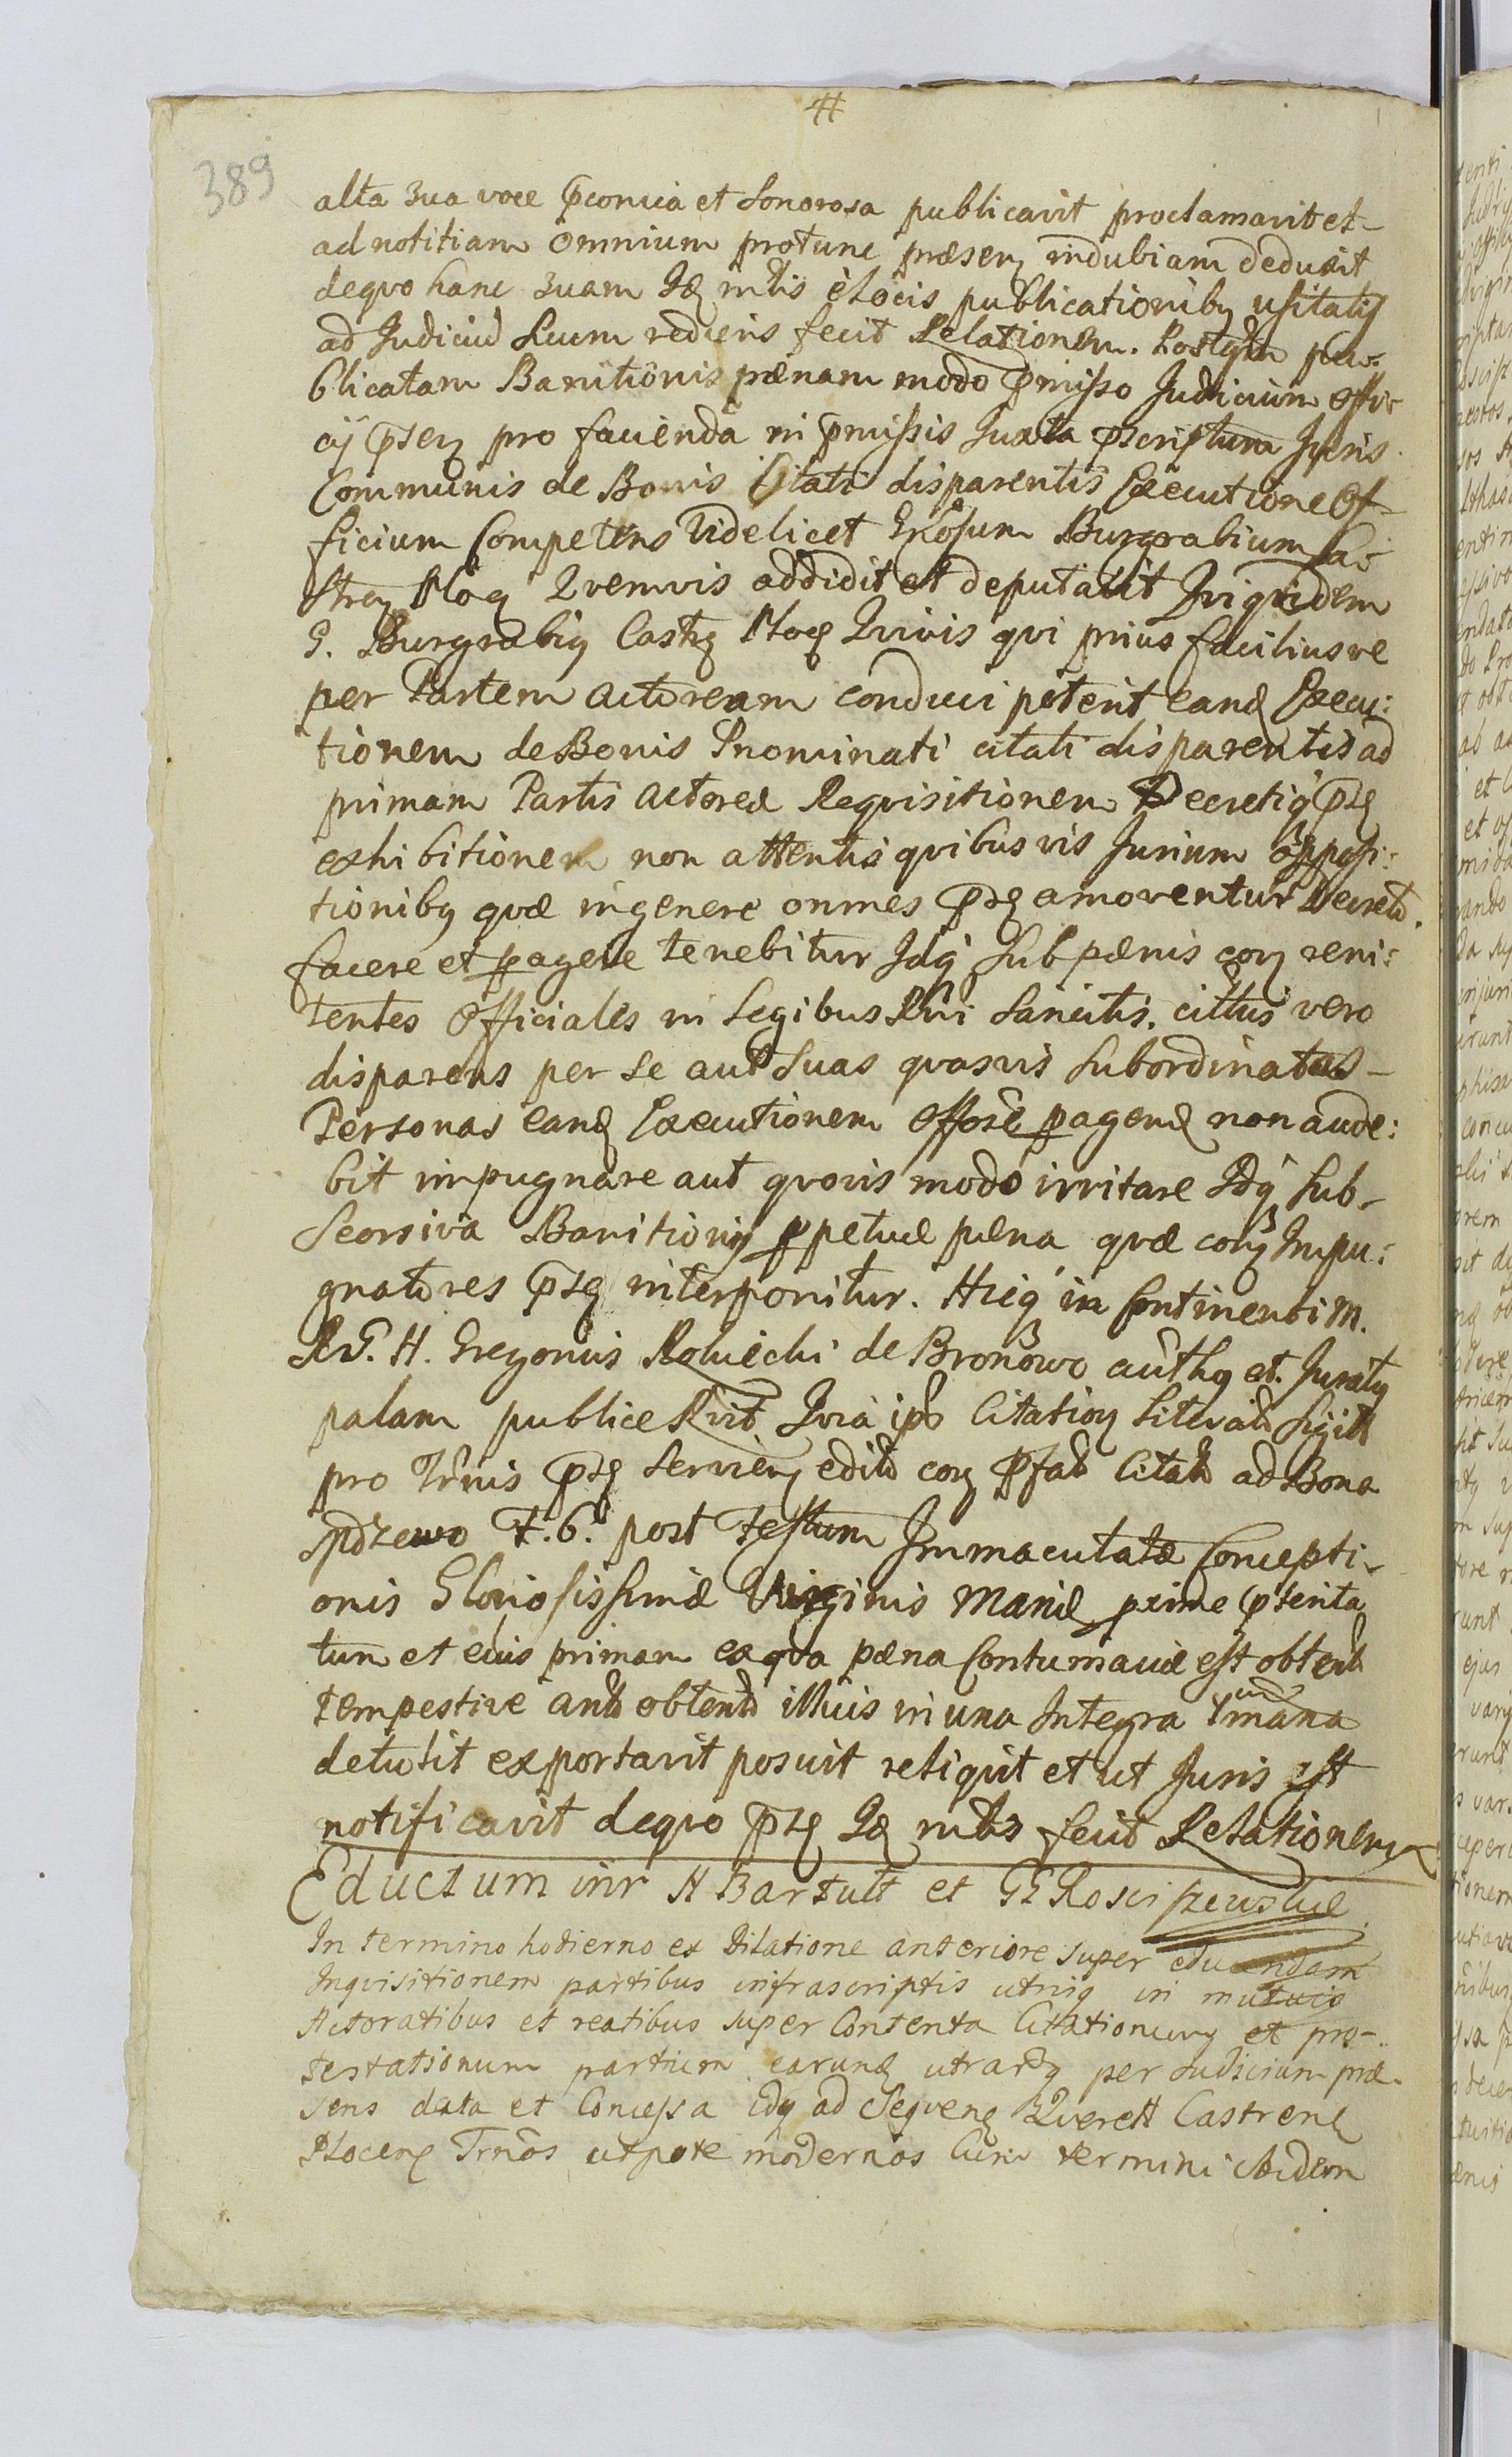 #
389
alta sua voce p̄conica et Sonorosa publicavit proclamavit et
ad notitiam omnium protunc præsen indubiam deduxit
deqvo hanc suam Idq mtis e Locis publicationibq usitatis
ad Judiciu Suum rediens fecit Relationem. Postqm pu:
blicatam Banitionis pænam modo p̄misso Judicium offi
cij p̄sen pro facienda in p̄missis Juxta p̄scriptum Juris
Communis de Bonis Citati disparentis Executione Of
ficium Competens Videlicet Gnosum Burgrabium Ca
stren Ploc Qvemvis addidit et deputavit Qviqvidem
G. Burgrabiq Castr Ploc Qvivis qvi prius faciliusve
per Partem actoream conduci poterit eand Execu:
tionem de Bonis Pnominati citati disparentis ad
primam Partis actoreæ Reqvisitionem Decretiq p̄s
exhibitionem non attentis qvibusvis Jurium opposi:
tionibq qvæ ingenere omnes p̄s amoventur Decreto.
facere et pagere tenebitur Idq Sub pænis con reni:
tentes Officiales in Legibus Rni Sancitis. cittus vero
disparens per se aut Suas qvasvis Subordinatas
Personas eand Executionem offose pagend non aude:
bit impugnare aut qvovis modo irritare Idq Sub
Seorsiva Banitionis ppetuæ pæna qvæ con Impu:
gnatores p̄s interponitur. Hicq in Continenti M.
RG. H. Gregorius Roluecki de Bronowo authq et Juratq
palam publice Rvit Qvia ips Citation Literato Sigill
pro Trnis p̄s Servien edito con p̄fato Citato ad Bona
F. 6. post Festum Immaculatæ Concepti
onis Gloriosissimæ Virginis Mariæ proxime p̄terita
tum et eius primam ex qva pæna Contumaciæ est obtent
tempestive ante obtento illius in una Integra
detulit exportavit posuit reliqvit et ut Juris est
notificavit deqvo p̄s Idq mtis fecit Relationem
Eductum inr H Bartult et GG Rosciszewskie
In termino hodierno ex Dilatione anteriore super educendam
Inqvisitionem partibus infrascriptis utrinq in mutuis
Actoratibus et reatibus super Contenta Citationum et pro-
testationum partium earund utrarq per Judicium præ
sens data et Concessa idq ad Seqvens Qverell Castrens
Plocens Trnos utpote modernos Cum termini ibidem